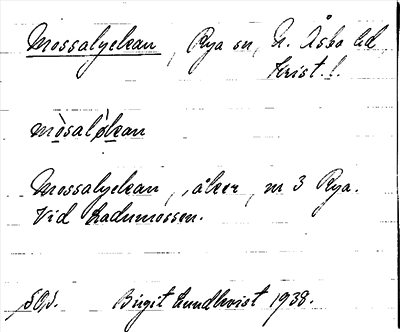 Mossalyckan, Rya sn, N. Åsbo hd,
Krist. l.
mòsalỳkan
Mossalyckan, åker, nr 3 Rya.
Vid Ladumossen.
Birgit Lundkvist 1938.